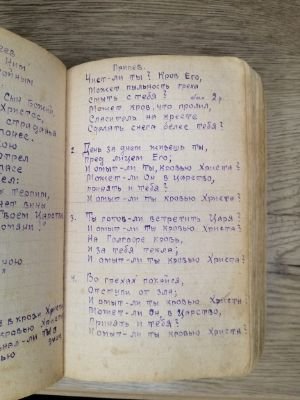 ев
Ним
ойным
Сын Божий
Христос,
страданья
онес.
кою
отрел
пасе
ел:
Терпим,
чет вины
Твоем Царстве
ою
Припев.
Чист-ли ты? Кров Его,
Может пыльность греха
Смыть с тебя? 2р.
Может кров, что пролил,
Спаситель на кресте
Сделать снега белее тебя?
2. День за днем живешь ты,
Пред лицем Его;
И омыт-ли ты, кровью Христа?
Может-ли Он в Царство,
принять и тебя?
И омыт-ли ты кровью Христа?
3. Ты готов-ли встретить Царя?
И омыт-ли ты кровью Христа?
На Голгофе кровь,
И за тебя текла;
И омыт-ли ты кровью Христа?
4. Во грехах покайся,
Отступи от зла;
И омыт-ли ты кровью Христа
Может-ли Он, в Царство,
Принять и тебя?
И омыт-ли ты кровью Христа?
в крови Христа
кровью Христа
ли ты